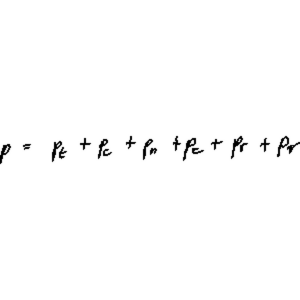 p = p_t + p_c + p_n + p_τ + p_r + p_v